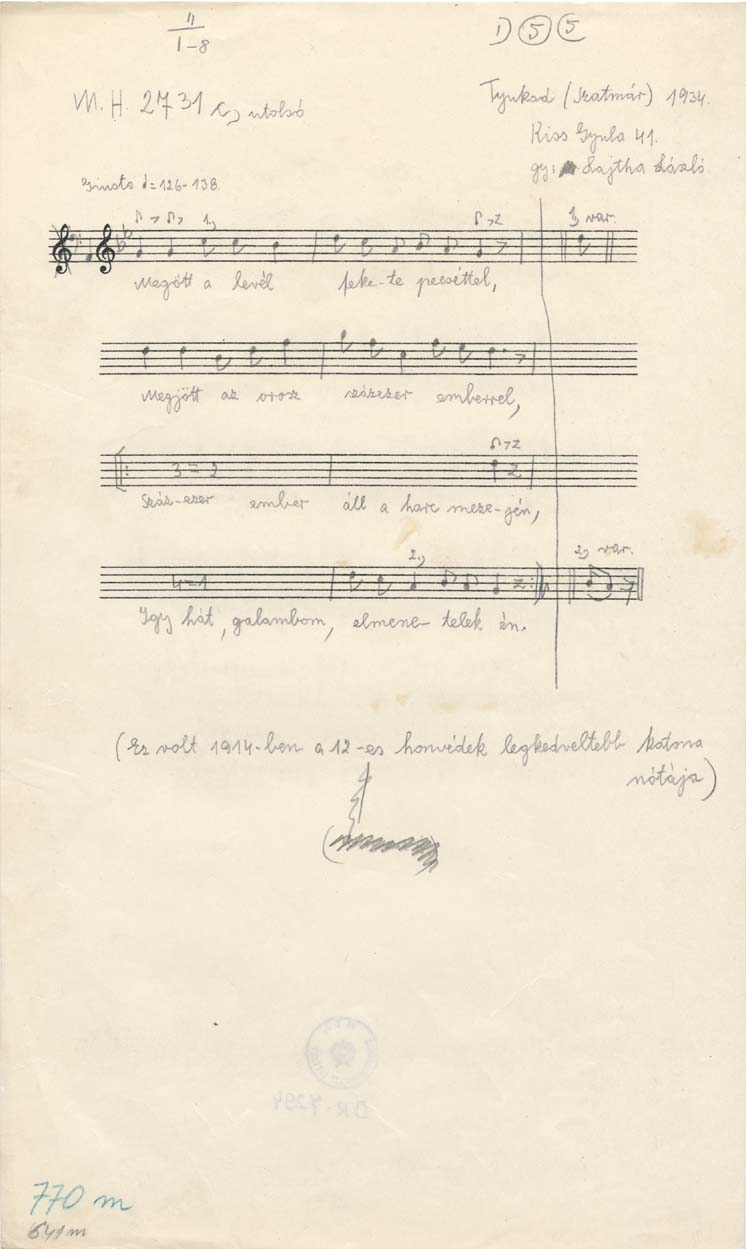 II
I-8
1) 5 5
M. H. 2731 c, utolsó
Tyukod (Szatmár) 1934.
Kiss Gyula 41.
gy: Lajtha László.
Giusto = 126-138.
1,
1, var.
Megött a levél feke-te pecséttel,
Megjött az orosz százezer emberrel,
3 = 2
Száz-ezer ember áll a harc meze-jén,
2.,
2, var.
4=1
Igy hát, galambom, elmene-telek én.
(Ez volt 1914-ben a 12-es honvédek legkedveltebb katona
nótája)
DR-7294
770 m
641 m